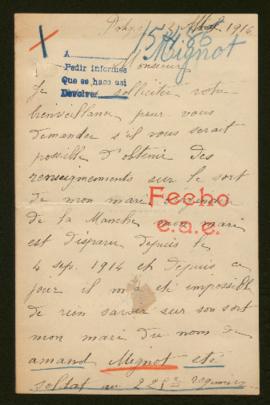 1916
Mignot
A
Pedir informes
Que se haga así
Devolver
Monsieur
Je sollicite votre
bienveillance pour vous
demander s'il vous serait
possible d'obtenir des
renseignements sur le sort
de mon mari
de la Manche mon mari
est disparu depuis le
4 sep. 1914 et depuis ce
jour il m'a été impossible
de rien savoir sur son sort
mon mari du nom de
amand Mignot été
soldat au
Fecho
e.a.e.